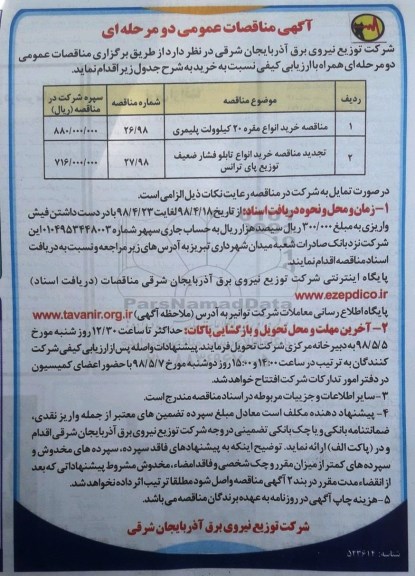 آگهی مناقصات عمومی دو مرحله ای
شرکت توزیع نیروی برق آذربایجان شرقی در نظر دارد از طریق برگزاری مناقصات عمومی
دو مرحله ای همراه با ارزیابی کیفی نسبت به خرید به شرح جدول زیر اقدام نماید.
ردیف موضوع مناقصه شماره مناقصه سپرده شرکت در مناقصه (ریال)
۱ مناقصه خرید انواع مقره ۲۰ کیلوولت پلیمری ۲۶/۹۸ ۸۸۰/۰۰۰/۰۰۰
۲ تجدید مناقصه خرید انواع تابلو فشار ضعیف توزیع پای ترانس ۲۷/۹۸ ۷۱۶/۰۰۰/۰۰۰
در صورت تمایل به شرکت در مناقصه رعایت نکات ذیل الزامی است.
۱- زمان و محل و نحوه دریافت اسناد: از تاریخ ۹۸/۴/۱۸ لغایت ۹۸/۴/۲۳ با در دست داشتن فیش
واریزی به مبلغ ۳۰۰/۰۰۰ ریال سیصد هزار ریال به حساب جاری سپهر شماره ۰۱۰۴۹۵۳۴۴۸۰۰۳ این
شرکت نزد بانک صادرات شعبه میدان شهرداری تبریز به آدرس های زیر مراجعه و نسبت به دریافت
اسناد مناقصه اقدام نمایند.
پایگاه اینترنتی شرکت توزیع نیروی برق آذربایجان شرقی مناقصات (دریافت اسناد)
www.ezepdico.ir
پایگاه اطلاع رسانی معاملات شرکت توانیر به آدرس (ملاحظه آگهی) www.tavanir.org.ir
ParsNamadData
۲- آخرین مهلت و محل تحویل و بازگشایی پاکات: حداکثر تا ساعت ۱۲/۳۰ روز شنبه مورخ
۹۸/۵/۵ به دبیرخانه مرکزی شرکت تحویل فرمایند. پیشنهادات واصله پس از ارزیابی کیفی شرکت
کنندگان به ترتیب در ساعت ۱۴:۰۰ و ۱۵:۰۰ روز دوشنبه مورخ ۹۸/۵/۷ با حضور اعضای کمیسیون
در دفتر امور تدارکات شرکت افتتاح خواهد شد.
۳- سایر اطلاعات و جزییات مربوطه در اسناد مناقصه مندرج است.
۴- پیشنهاد دهنده مکلف است معادل مبلغ سپرده تضمین های معتبر از جمله واریز نقدی،
ضمانتنامه بانکی و یا چک بانکی تضمینی در وجه شرکت توزیع نیروی برق آذربایجان شرقی اقدام
و در (پاکت الف) ارائه نماید. توضیح اینکه به پیشنهادهای فاقد سپرده، سپرده های مخدوش و
سپرده های کمتر از میزان مقرر و چک شخصی و فاقد امضاء، مخدوش مشروط پیشنهاداتی که بعد
از انقضاء مدت مقرر در بند ۲ آگهی مناقصه واصل شود مطلقا ترتیب اثر داده نخواهد شد.
۵- هزینه چاپ آگهی در روزنامه به عهده برندگان مناقصه می باشد.
شرکت توزیع نیروی برق آذربایجان شرقی
شناسه: ۵۲۳۶۱۴